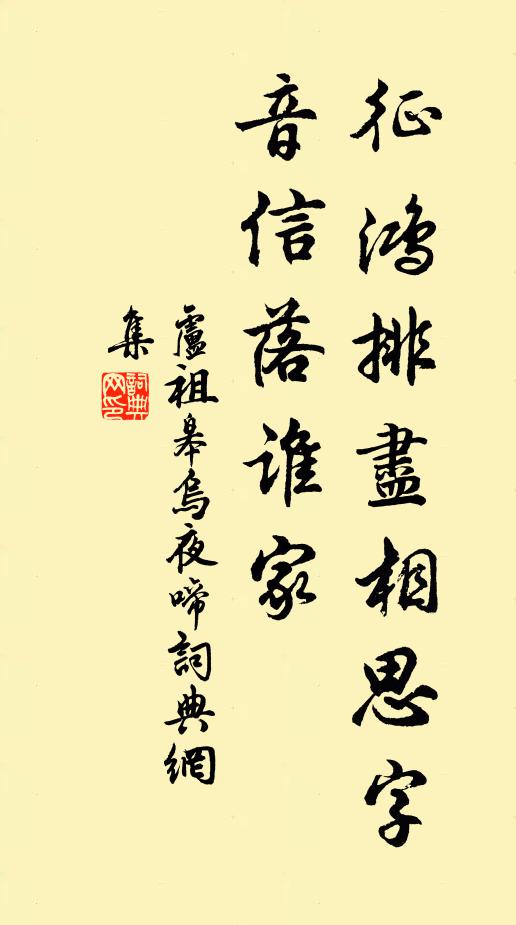 征鴻排盡相思字
音信落誰家
盧祖皋烏夜啼詞典網
集
詞典
网印